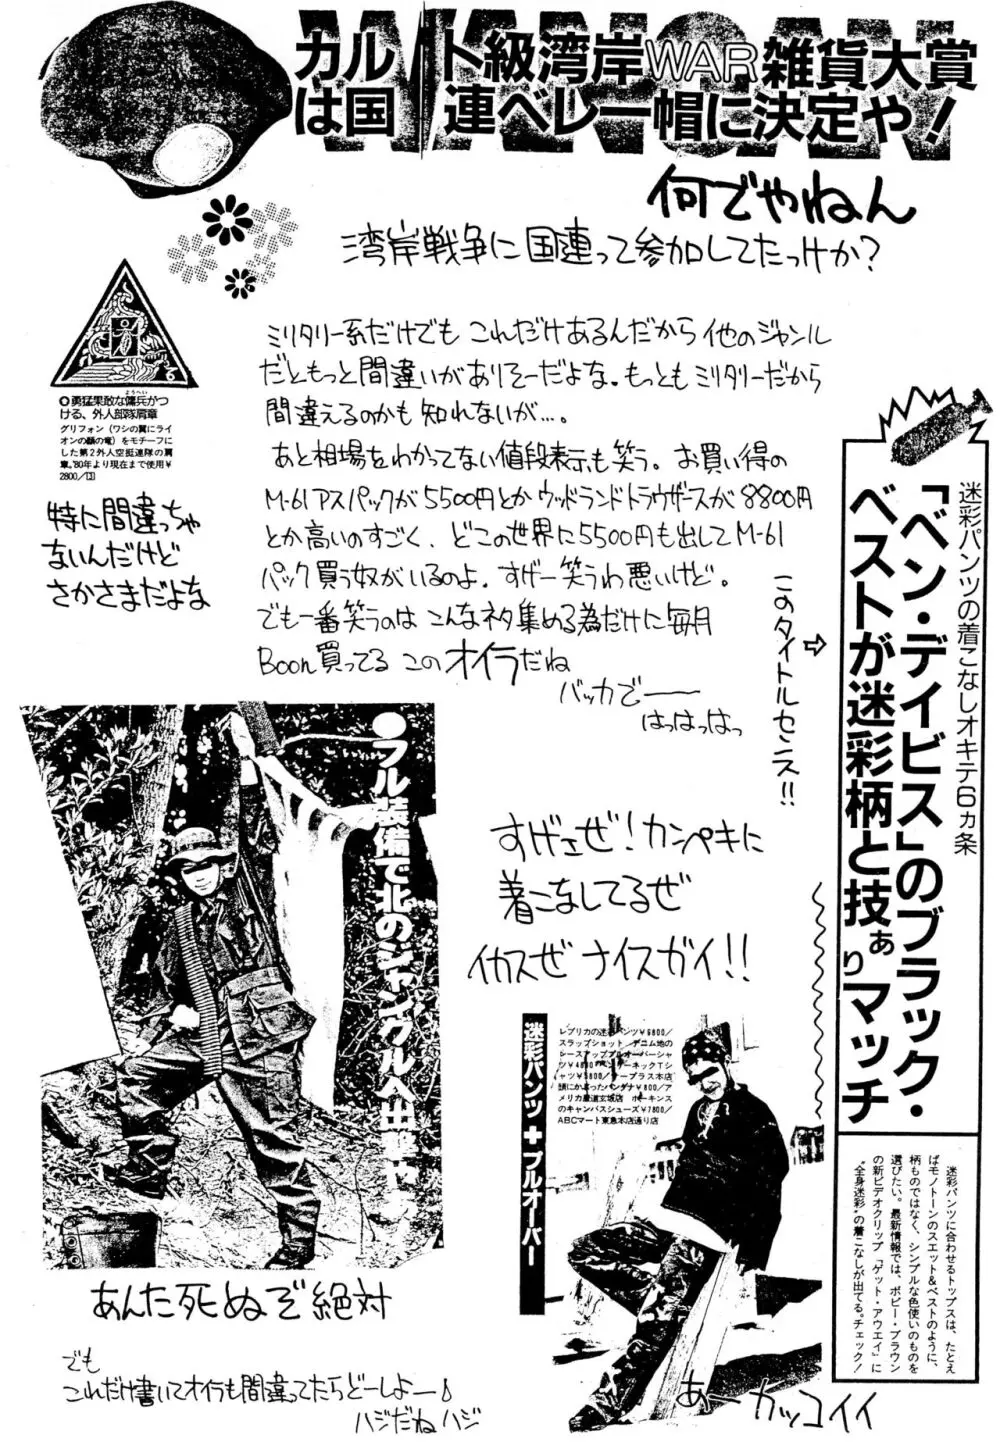 WANGAN
カルト級湾岸WAR雑貨大賞
は国連ベレー帽に決定や!
何でやねん
湾岸戦争に国連って参加してたっけか?
ミリタリー系だけでも これだけあるんだから 他のジャンル
だともっと間違いがありそーだよな。もっともミリタリーだから
間違えるのかも知れないが…。
あと相場をわかってない値段表示も笑う。お買い得の
M-61アスパックが5500円とかウッドランドトラウザースが8800円
とか高いのすごく、どこの世界に5500円も出してM-61
パック買う奴がいるのよ。すげー笑うわ悪いけど。
でも一番笑うのは こんなネタ集める為だけに毎月
Boon買ってる このオイラだね
バッカでー
はっはっはっ
◎勇猛果敢な傭兵がつ
ようへい
ける、外人部隊肩章
グリフォン(ワシの翼にライ
オンの顔の竜)をモチーフに
した第2外人空挺連隊の肩
章。'80年より現在まで使用¥
2800/13
特に間違っちゃ
ないんだけど
さかさまだよな
このタイトルセンス!!
迷彩パンツの着こなしオキテ6ヵ条
「ベン・デイビス」のブラック・
ベストが迷彩柄と技ありマッチ
迷彩パンツに合わせるトップスは、たとえ
ばモノトーンのスエット&ベストのように、
柄ものではなく、シンプルな色使いのものを
選びたい。最新情報では、ボビー・ブラウン
の新ビデオクリップ『ゲット・アウエイ』に
“全身迷彩”の着こなしが出てる。チェック!
●フル装備で北のジャングルへ出撃
あんた死ぬぞ絶対
すげェぜ!カンペキに
着こなしてるぜ
イカスぜ ナイスガイ!!
迷彩パンツ+プルオーバー
レプリカの迷彩パンツ¥6800/
スラップショット デニム地の
レースアッププルオーバーシャ
ツ¥4800 ヘンリーネックTシ
ャツ¥3800/ナープラス本店
頭にかぶったバンダナ¥800/ア
メリカ屋道玄坂店 ホーキンス
のキャンバスシューズ¥7800/
ABCマート東急本店通り店
あーカッコイイ
でも
これだけ書いてオイラも間違ってたらどーしよー♪
ハジだね ハジ